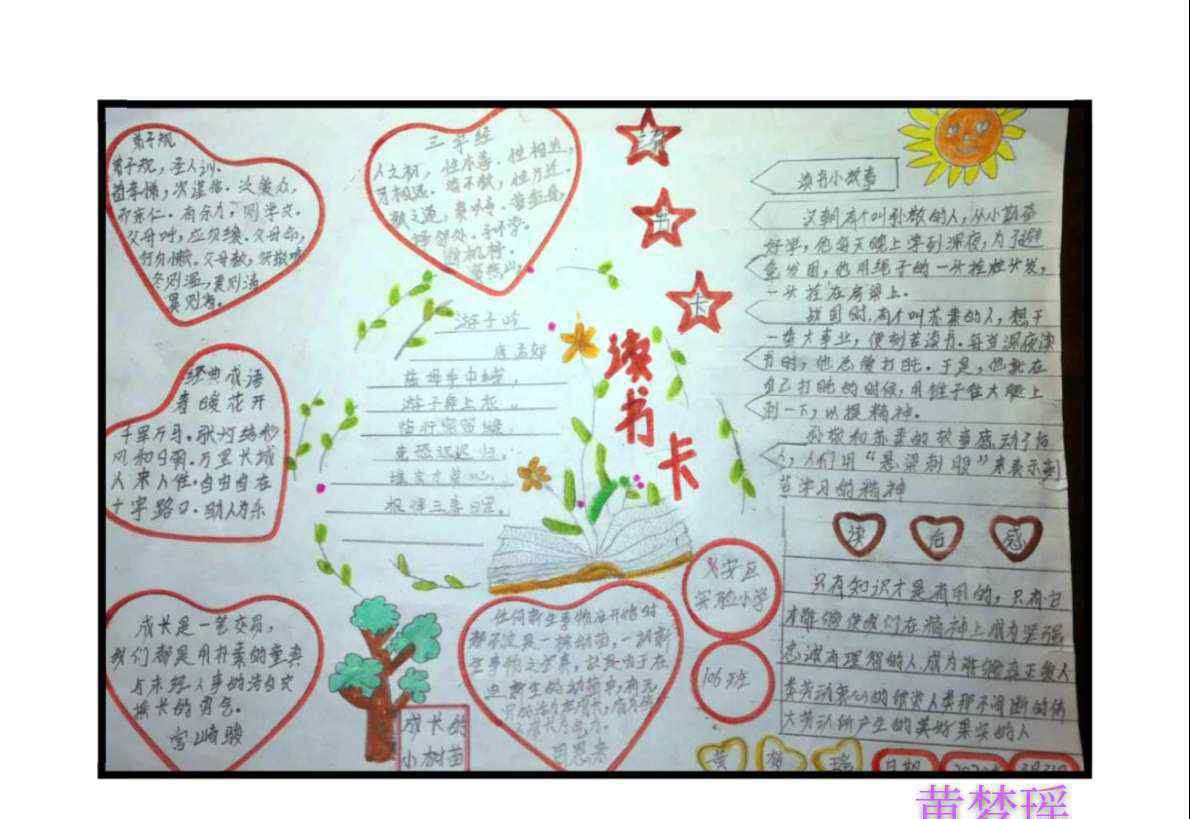 弟子规
弟子规，圣人训。
首孝悌，次谨信。泛爱众，
而亲仁。有余力，则学文。
父母呼，应勿缓。父母命，
行勿懒。父母教，须敬听
冬则温，夏则凊
晨则省。
三字经
人之初，性本善。性相近，
习相远。苟不教，性乃迁。
教之道，贵以专。昔孟母，
择邻处。子不学，
断机杼。
窦燕山，
读
书
卡
经典成语
春暖花开
千军万马。
风和日丽。万里长城
人来人往。自由自在
十字路口。助人为乐
游子吟
唐 孟郊
慈母手中线，
游子身上衣。
临行密密缝，
意恐迟迟归。
谁言寸草心，
报得三春晖。
读
书
卡
读书小故事
汉朝有个叫孙敬的人，从小勤奋
好学，他每天晚上学到深夜，为了避
免发困，他用绳子的一头拴住头发，
一头拴在房梁上。
战国时，有个叫苏秦的人，想干
一番大事业，便刻苦读书。每当深夜读
书时，他总爱打盹。于是，他就在
自己打盹的时候，用锥子往大腿上
刺一下，以提精神。
孙敬和苏秦的故事感动了后
人，人们用“悬梁刺股”来表示刻
苦学习的精神
读 后 感
只有知识才是有用的，只有它
才能够使我们在精神上成为坚强
忠诚有理智的人，成为能够真正爱人
类劳动衷心的欣赏人类那不间断的伟
大劳动所产生的美好果实的人
成长是一笔交易，
我们都是用朴素的童真
与未经人事的洁白交
换长的勇气。
宫崎骏
成长的
小树苗
任何新生事物在开始时
都不过是一株幼苗，一切新
生事物之可贵，就是因为在
这新生的幼苗中，有无
义安区
实验小学
106班
黄 梦 瑶
日期
黄梦瑶